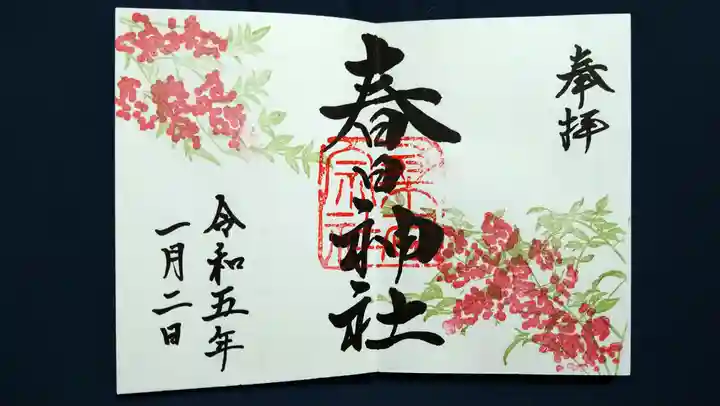 奉拝
春日神社
令和五年
一月二日